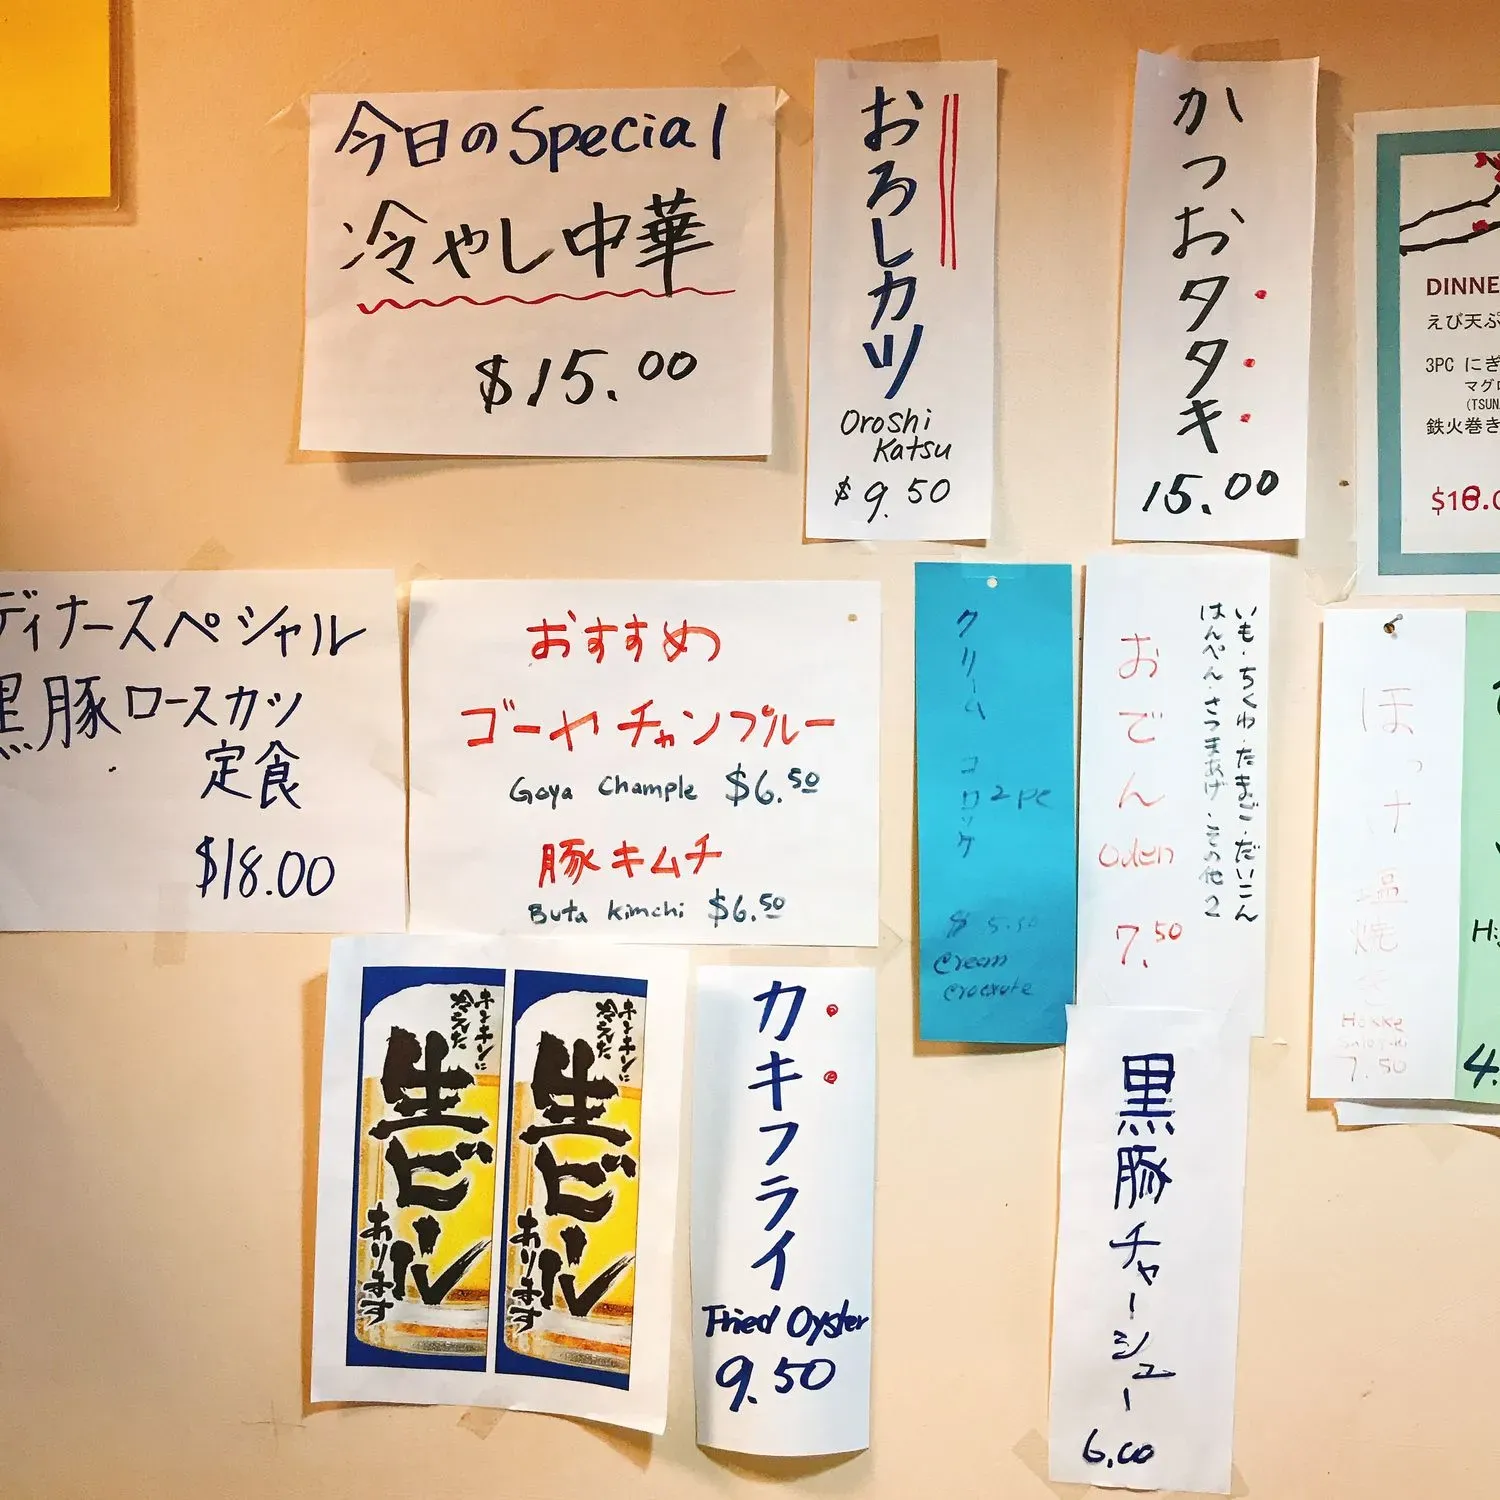 今日のSpecial
冷やし中華
$15.00
おろしカツ
Oroshi
Katsu
$9.50
かつおタタキ
15.00
DINNE
えび天ぷ
3PC にぎ
マグロ
(TSUN
鉄火巻き
ディナースペシャル
黒豚ロースカツ
定食
$18.00
おすすめ
ゴーヤチャンプルー
Goya Chample $6.50
豚キムチ
Buta Kimchi $6.50
クリームコロッケ
2pc
$5.50
Cream
いも・ちくわ・たまご・だいこん
はんぺん・さつまあげ・その他2
おでん
Oden
7.50
ほっけ塩焼き
Hokke
7.50
4.
キンキンに
冷えた
生ビール
あります
キンキンに
冷えた
生ビール
あります
カキフライ
Fried Oyster
9.50
黒豚チャーシュー
6.00